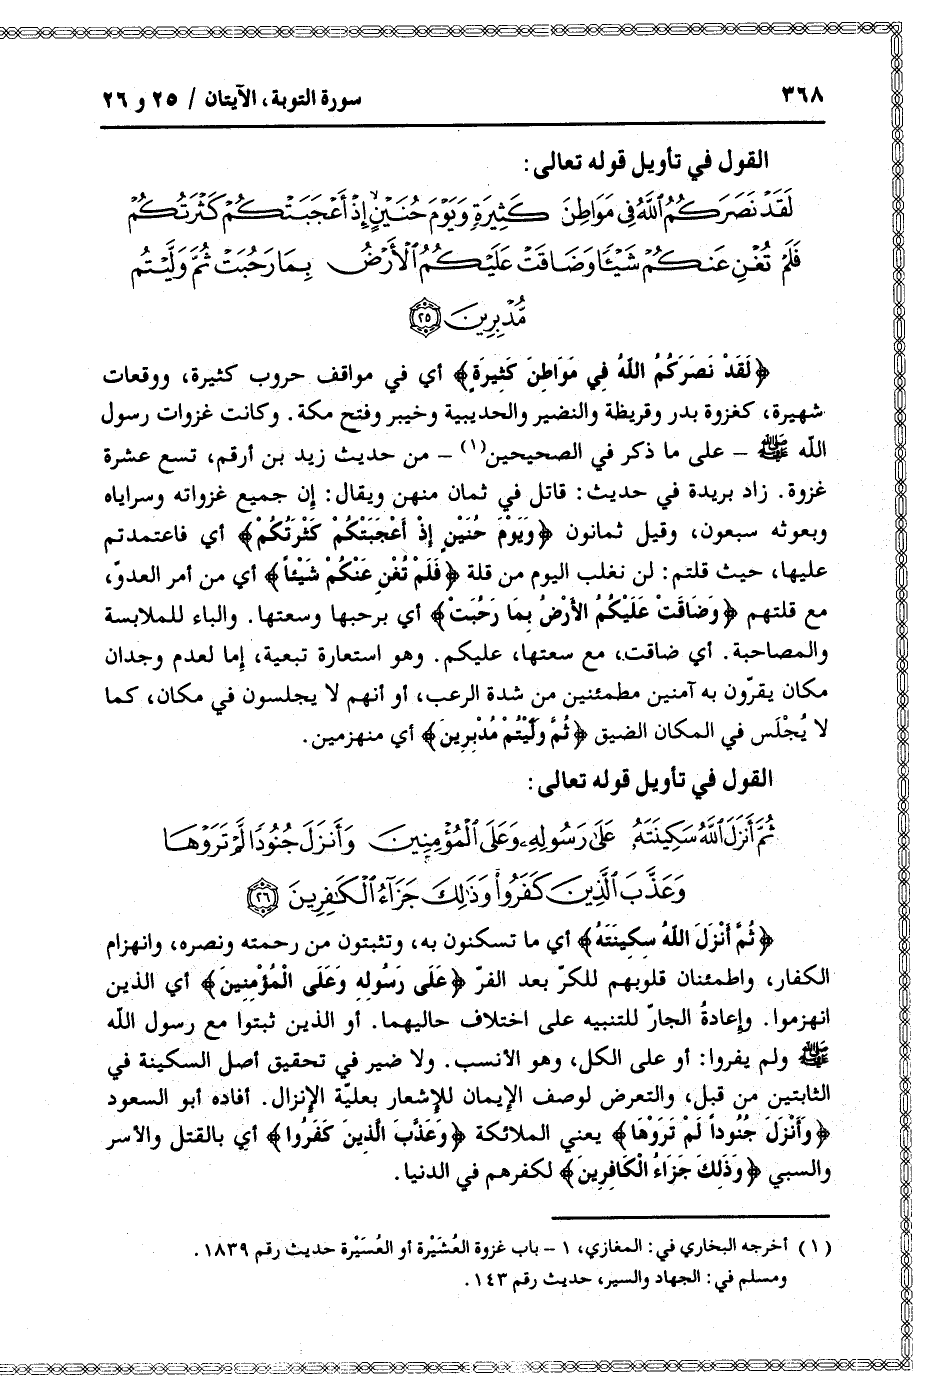 ٣٦٨
سورة التوبة، الآيتان / ٢٥ و ٢٦
القول في تأويل قوله تعالى:
لَقَدْ نَصَرَكُمُ ٱللَّهُ فِى مَوَاطِنَ كَثِيرَةٍ وَيَوْمَ حُنَيْنٍ إِذْ أَعْجَبَتْكُمْ كَثْرَتُكُمْ
فَلَمْ تُغْنِ عَنكُمْ شَيْـًٔا وَضَاقَتْ عَلَيْكُمُ ٱلْأَرْضُ بِمَا رَحُبَتْ ثُمَّ وَلَّيْتُم
مُّدْبِرِينَ ٢٥
﴿لَقَدْ نَصَرَكُمُ اللّهُ فِي مَوَاطِنَ كَثِيرَةٍ﴾ أي في مواقف حروب كثيرة، ووقعات
شهيرة، كغزوة بدر وقريظة والنضير والحديبية وخيبر وفتح مكة. وكانت غزوات رسول
اللّه ﷺ – على ما ذكر في الصحيحين(١) – من حديث زيد بن أرقم، تسع عشرة
غزوة. زاد بريدة في حديث: قاتل في ثمان منهن ويقال: إن جميع غزواته وسراياه
وبعوثه سبعون، وقيل ثمانون ﴿وَيَوْمَ حُنَيْنٍ إِذْ أَعْجَبَتْكُمْ كَثْرَتُكُمْ﴾ أي فاعتمدتم
عليها، حيث قلتم: لن نغلب اليوم من قلة ﴿فَلَمْ تُغْنِ عَنْكُمْ شَيْئاً﴾ أي من أمر العدوّ،
مع قلتهم ﴿وَضَاقَتْ عَلَيْكُمُ الأَرْضُ بِمَا رَحُبَتْ﴾ أي برحبها وسعتها. والباء للملابسة
والمصاحبة. أي ضاقت، مع سعتها، عليكم. وهو استعارة تبعية، إما لعدم وجدان
مكان يقرّون به آمنين مطمئنين من شدة الرعب، أو أنهم لا يجلسون في مكان، كما
لا يُجْلَس في المكان الضيق ﴿ثُمَّ وَلَّيْتُمْ مُدْبِرِينَ﴾ أي منهزمين.
القول في تأويل قوله تعالى:
ثُمَّ أَنزَلَ ٱللَّهُ سَكِينَتَهُۥ عَلَىٰ رَسُولِهِۦ وَعَلَى ٱلْمُؤْمِنِينَ وَأَنزَلَ جُنُودًا لَّمْ تَرَوْهَا
وَعَذَّبَ ٱلَّذِينَ كَفَرُوا۟ وَذَٰلِكَ جَزَآءُ ٱلْكَٰفِرِينَ ٢٦
﴿ثُمَّ أَنْزَلَ اللّهُ سكِينَتَهُ﴾ أي ما تسكنون به، وتثبتون من رحمته ونصره، وانهزام
الكفار، واطمئنان قلوبهم للكرّ بعد الفرّ ﴿عَلَى رَسُولِهِ وَعَلَى الْمُؤْمِنِينَ﴾ أي الذين
انهزموا. وإعادةُ الجارّ للتنبيه على اختلاف حاليهما. أو الذين ثبتوا مع رسول اللّه
ﷺ ولم يفروا: أو على الكل، وهو الأنسب. ولا ضير في تحقيق أصل السكينة في
الثابتين من قبل، والتعرض لوصف الإيمان للإشعار بعليّة الإنزال. أفاده أبو السعود
﴿وَأَنْزَلَ جُنُوداً لَمْ تَرَوْهَا﴾ يعني الملائكة ﴿وَعَذَّبَ الَّذِينَ كَفَرُوا﴾ أي بالقتل والأسر
والسبي ﴿وَذَلِكَ جَزَاءُ الْكَافِرِينَ﴾ لكفرهم في الدنيا.
(١) أخرجه البخاري في: المغازي، ١ – باب غزوة العُشَيْرة أو العُسَيْرة حديث رقم ١٨٣٩.
ومسلم في: الجهاد والسير، حديث رقم ١٤٣.